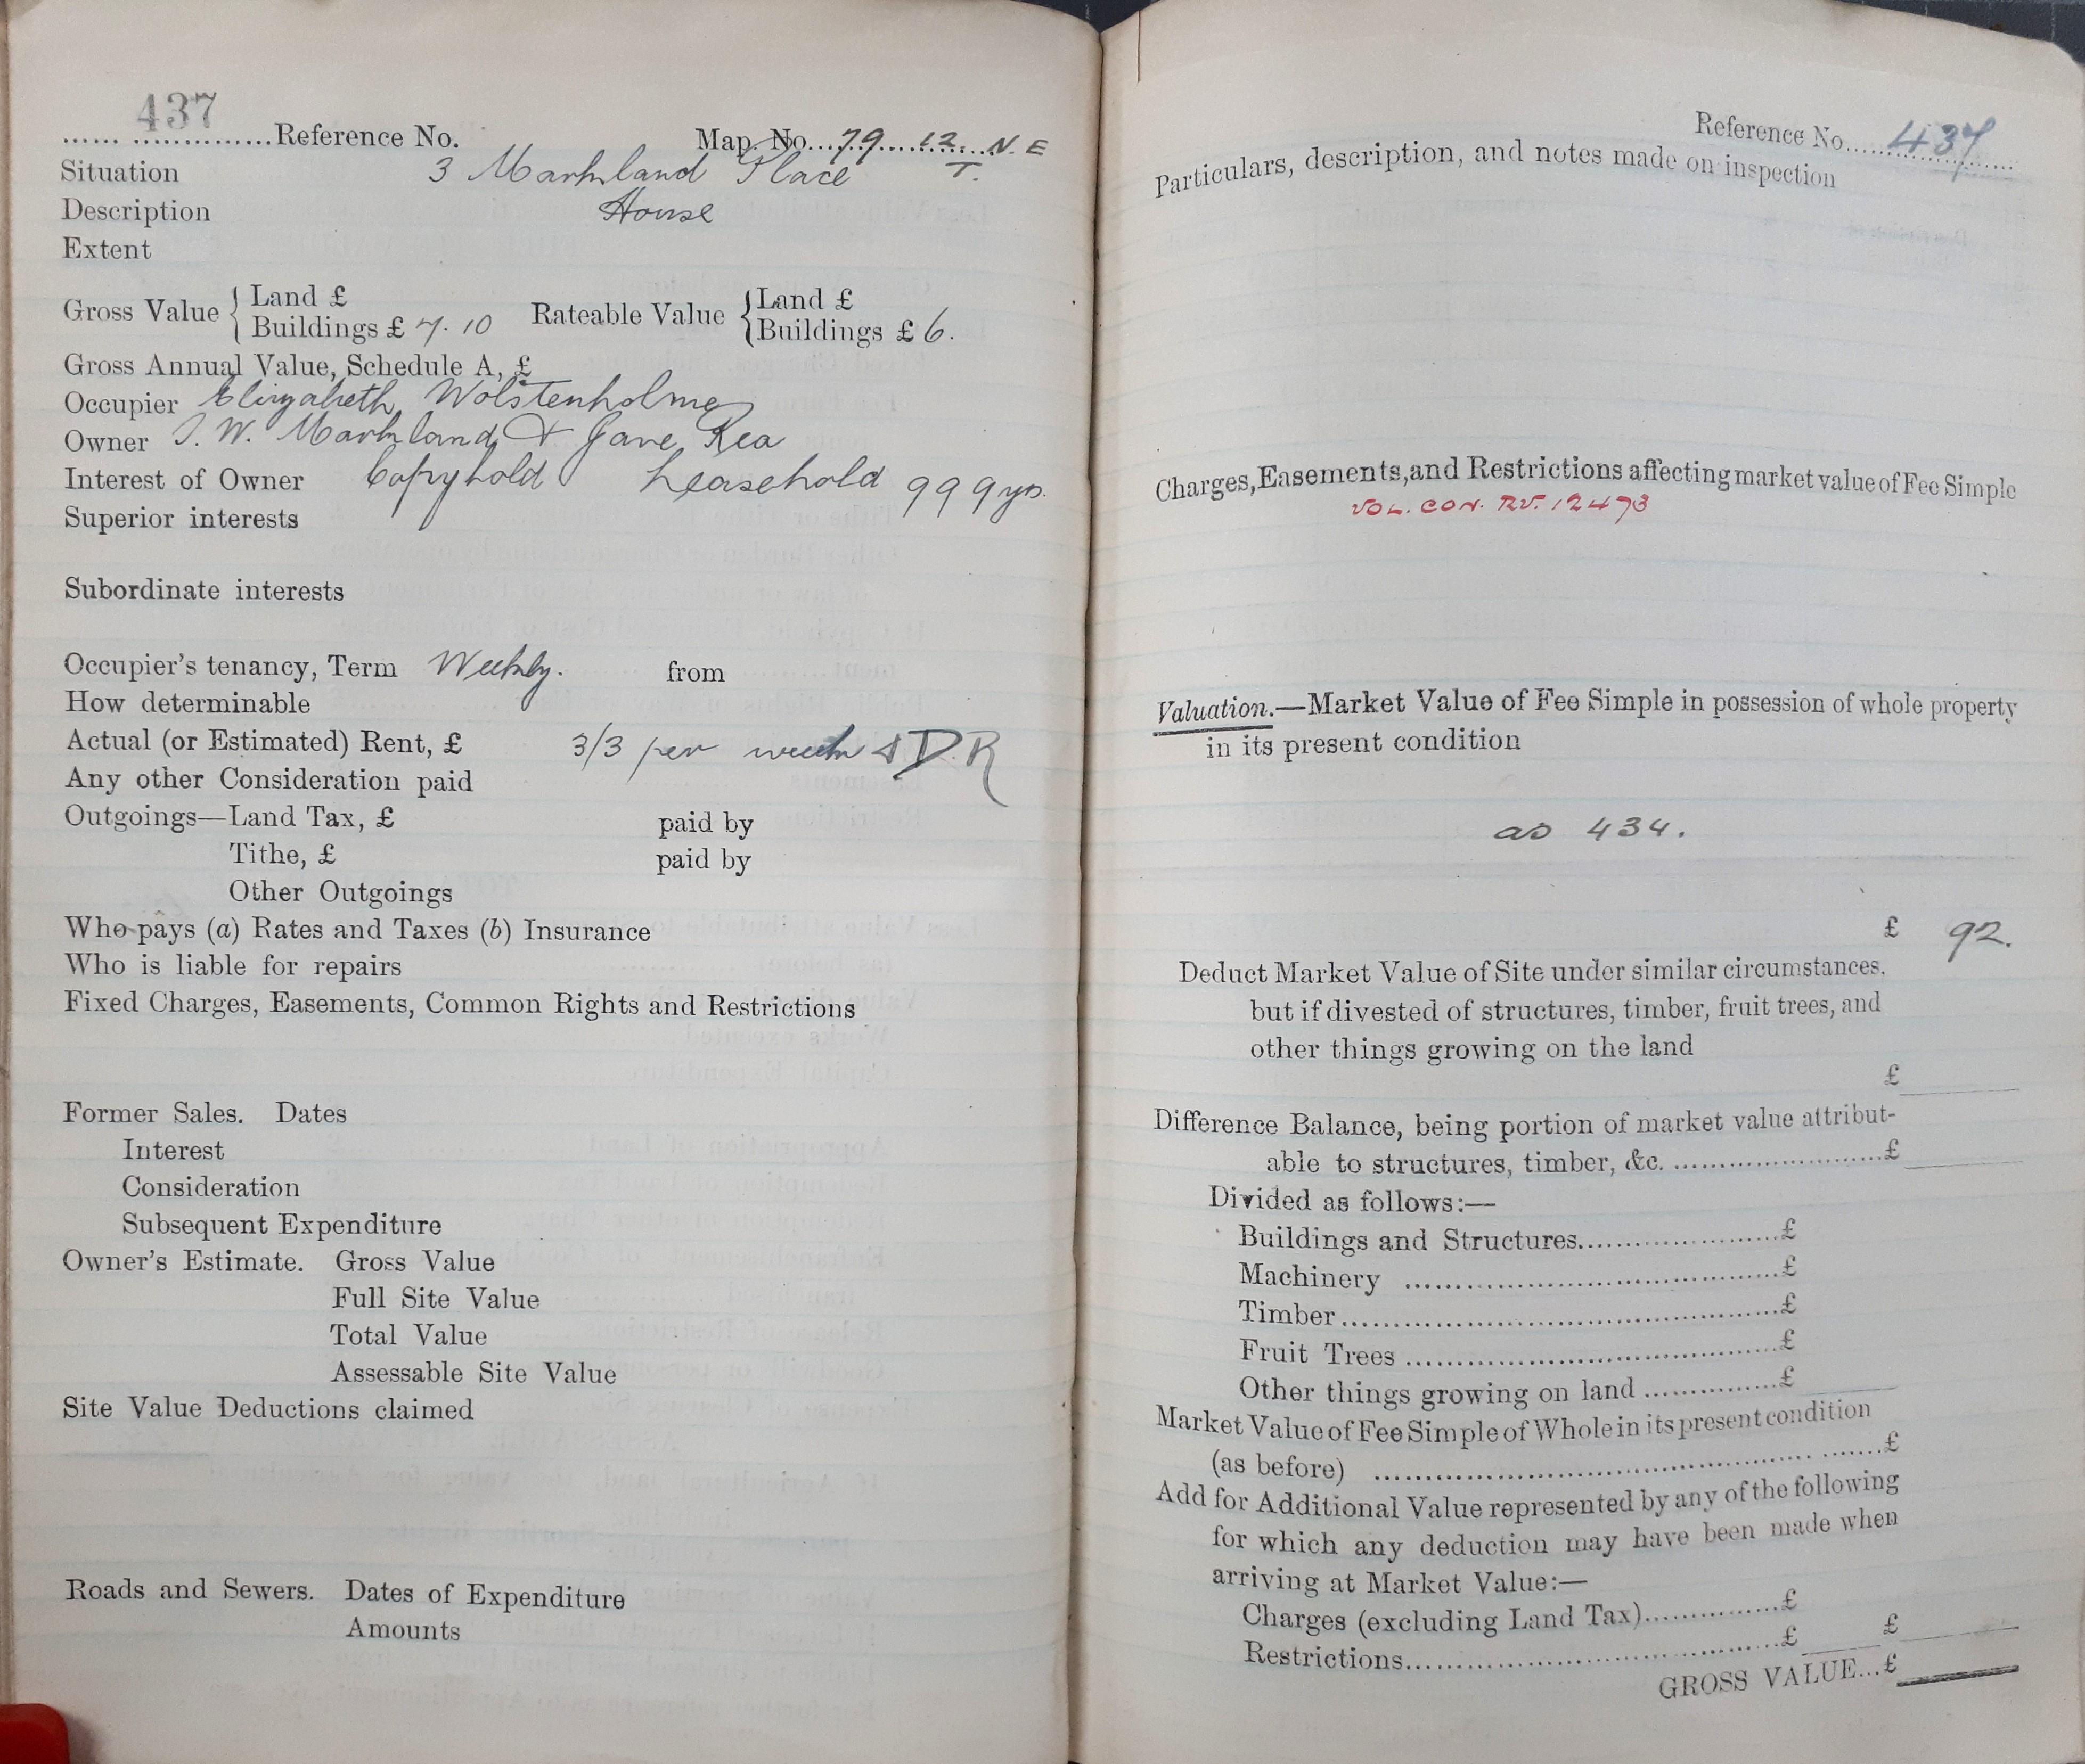 437
...... ..............Reference No. Map. No...79...12...N.E
T.
Situation 3 Markland Place
Description House
Extent
Gross Value { Land £
Buildings £ 7.10
Rateable Value { Land £
Buildings £ 6.
Gross Annual Value, Schedule A, £
Occupier Elizabeth Wolstenholme
Owner J. W. Markland & Jane Rea
Interest of Owner Copyhold Leasehold 999 yrs.
Superior interests
Subordinate interests
Occupier's tenancy, Term Weekly. from
How determinable
Actual (or Estimated) Rent, £ 3/3 per week & D.R
Any other Consideration paid
Outgoings—Land Tax, £ paid by
Tithe, £ paid by
Other Outgoings
Who pays (a) Rates and Taxes (b) Insurance
Who is liable for repairs
Fixed Charges, Easements, Common Rights and Restrictions
Former Sales. Dates
Interest
Consideration
Subsequent Expenditure
Owner's Estimate. Gross Value
Full Site Value
Total Value
Assessable Site Value
Site Value Deductions claimed
Roads and Sewers. Dates of Expenditure
Amounts
Reference No....437
Particulars, description, and notes made on inspection
Charges, Easements, and Restrictions affecting market value of Fee Simple
VOL. CON. RV. 12473
Valuation.—Market Value of Fee Simple in possession of whole property
in its present condition
as 434.
£ 92.
Deduct Market Value of Site under similar circumstances.
but if divested of structures, timber, fruit trees, and
other things growing on the land
£
Difference Balance, being portion of market value attribut-
able to structures, timber, &c. ...........................£
Divided as follows:—
Buildings and Structures........................£
Machinery ...........................................£
Timber..................................................£
Fruit Trees ...........................................£
Other things growing on land ................£
Market Value of Fee Simple of Whole in its present condition
(as before) .................................................... .......£
Add for Additional Value represented by any of the following
for which any deduction may have been made when
arriving at Market Value:—
Charges (excluding Land Tax)................£
Restrictions...........................................£ £
GROSS VALUE...£